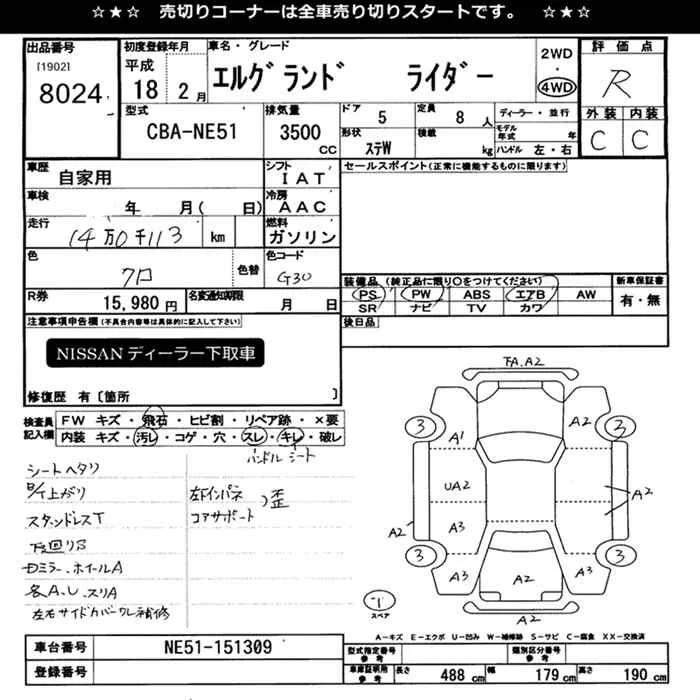 ☆★☆ 売切りコーナーは全車売り切りスタートです。 ☆★☆
出品番号
[1902]
8024
初度登録年月
平成
18 2月
車名・グレード
エルグランド ライダー
2WD
・
4WD
評価点
R
外装 内装
C C
型式
CBA-NE51
排気量
3500
cc
ドア
5
定員
8人
形状
ステW
積載
kg
ディーラー・並行
モデル年式 年
ハンドル 左・右
車歴
自家用
シフト
IAT
車検
年 月( 日)
冷房
AAC
走行
14万0千113 km
燃料
ガソリン
色
クロ
色替
色コード
G30
R券
15,980円
名変通知期限
月 日
セールスポイント(正常に機能するものに限ります)
装備品(純正品に限り○をつけてください)
PS PW ABS エアB AW
SR ナビ TV カワ
新車保証書
有・無
後日品
注意事項申告欄(不具合内容等は具体的に記入して下さい)
NISSANディーラー下取車
修復歴 有〔箇所 〕
検査員記入欄
FW キズ・飛石・ヒビ割・リペア跡・×要
内装 キズ・汚レ・コゲ・穴・スレ・キレ・破レ
ハンドル シート
シートヘタリ
左下インパネ
コアサポート
歪
スタッドレスT
下廻りS
ドミラー、ホイールA
各A.U.スリA
左右サイドカバーワレ補修
FA.A2
3
A1
A2
2
UA2
A2
A2
A3
3
A3
A2
A3
3
A2
スペア
A―キズ E―エクボ U―凹み W―補修跡 S―サビ C―腐食 XX―交換済
車台番号
NE51-151309
登録番号
型式指定番号参考
類別区分番号参考
車庫証明用参考
長さ 488cm
幅 179cm
高さ 190cm